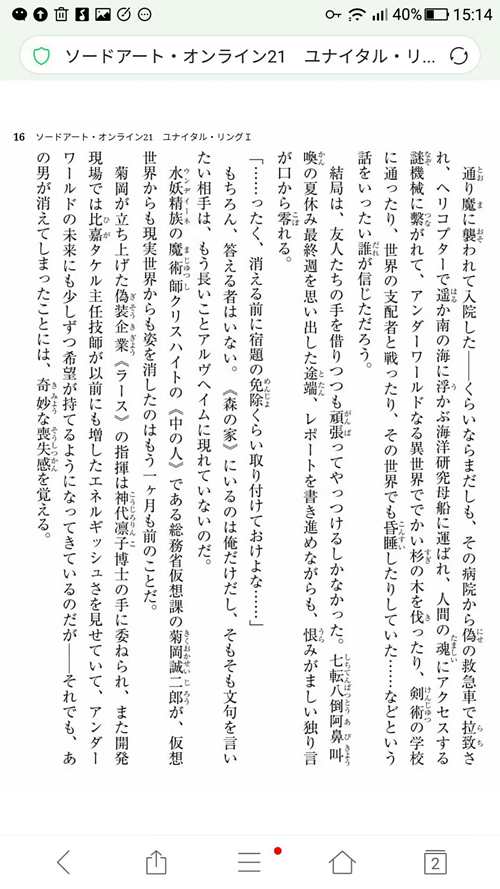 40% 15:14
ソードアート・オンライン21 ユナイタル・リ...
16 ソードアート・オンライン21 ユナイタル・リングⅠ
通り魔に襲われて入院した――くらいならまだしも、その病院から偽の救急車で拉致さ
れ、ヘリコプターで遥か南の海に浮かぶ海洋研究母船に運ばれ、人間の魂にアクセスする
謎機械に繋がれて、アンダーワールドなる異世界ででかい杉の木を伐ったり、剣術の学校
に通ったり、世界の支配者と戦ったり、その世界でも昏睡したりしていた……などという
話をいったい誰が信じただろう。
結局は、友人たちの手を借りつつも頑張ってやっつけるしかなかった。七転八倒阿鼻叫
喚の夏休み最終週を思い出した途端、レポートを書き進めながらも、恨みがましい独り言
が口から零れる。
「……ったく、消える前に宿題の免除くらい取り付けておけよな……」
もちろん、答える者はいない。《森の家》にいるのは俺だけだし、そもそも文句を言い
たい相手は、もう長いことアルヴヘイムに現れていないのだ。
水妖精族の魔術師クリスハイトの《中の人》である総務省仮想課の菊岡誠二郎が、仮想
世界からも現実世界からも姿を消したのはもう一ヶ月も前のことだ。
菊岡が立ち上げた偽装企業《ラース》の指揮は神代凛子博士の手に委ねられ、また開発
現場では比嘉タケル主任技師が以前にも増したエネルギッシュさを見せていて、アンダー
ワールドの未来にも少しずつ希望が持てるようになってきているのだが――それでも、あ
の男が消えてしまったことには、奇妙な喪失感を覚える。
2